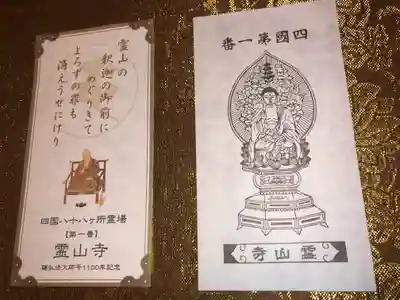 霊山の
釈迦の御前に
めぐりきて
よろずの罪も
消えうせにけり
四国八十八ヶ所霊場
【第一番】
霊山寺
弘法大師千1100年記念
番一第國四
寺山霊